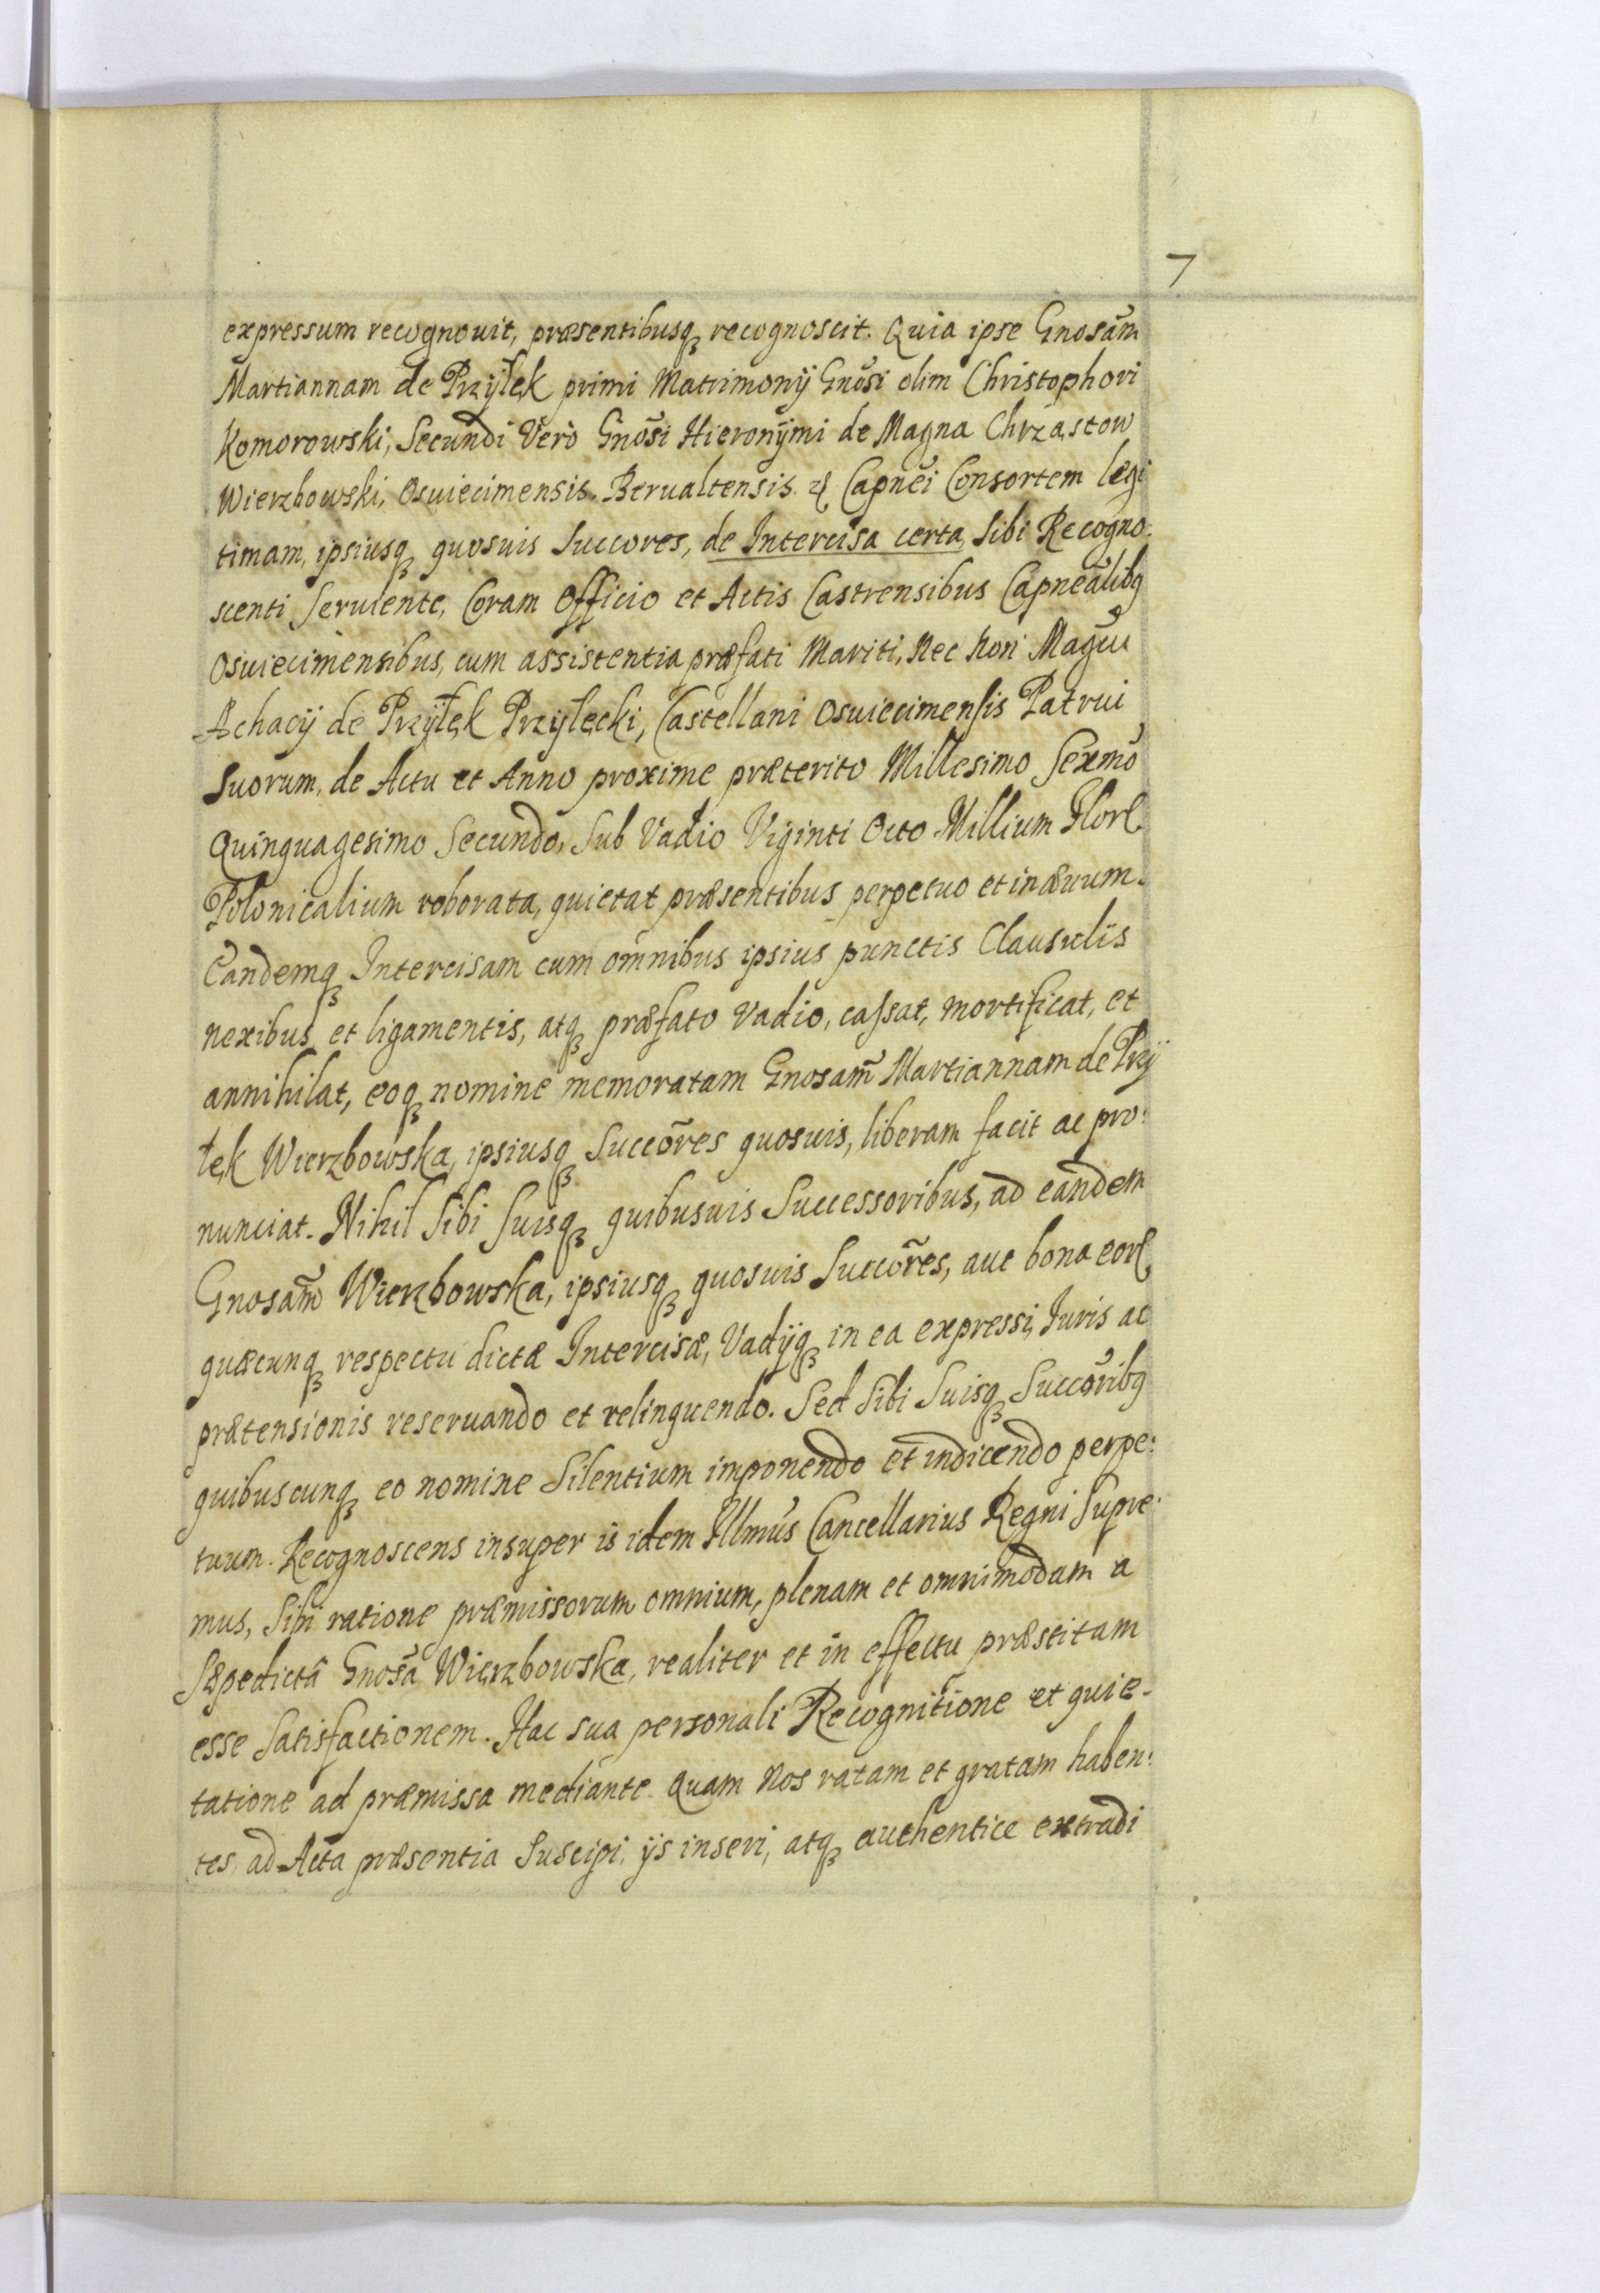 7
expressum recognouit, præsentibusq₃ recognoscit. Quia ipse Gnosãm
Martiannam de Przÿłęk primi Matrimonÿ Gnõsi olim Christophori
Komorowski, Secundi Verò Gnõsi Hieronÿmi de Magna Chrząstow
Wierzbowski, Osuiecimensis. Berualtensis. & Capnẽi Consortem legi
timam, ipsiusq₃ quosuis Succores, de Intercisa certa, Sibi Recogno:
scenti Seruiente, Coram Officio et Actis Castrensibus Capneãlibq
Osuiecimensibus, cum assistentia præfati Mariti, Nec Non Magci
Achacÿ de Przÿłęk Przÿłęcki, Castellani Osuiecimensis Patrui
Suorum, de Actu et Anno proxime præterito Millesimo Sexmõ
Quinquagesimo Secundo, Sub Vadio Viginti Octo Millium Flor.
Polonicalium roborata, quietat præsentibus perpetuo et in æuum.
Eandemq₃ Intercisam cum omnibus ipsius punctis Clausulis
nexibus et ligamentis, atq₃ præfato Vadio, cassat, mortificat, et
annihilat, eoq₃ nomine memoratam Gnosam̃ Martiannam de Przÿ
łęk Wierzbowska, ipsiusq₃ Succõres quosuis, liberam facit ac pro:
nunciat. Nihil Sibi Suisq₃ quibusuis Successoribus, ad eandem
Gnosam̃ Wierzbowska, ipsiusq₃ quosuis Succõres, aut bona eor
quæcunq₃ respectu dictæ Intercisæ, Vadÿq₃ in ea expressi, Iuris ac
prætensionis reseruando et relinquendo. Sed Sibi Suisq₃ Succõribq
quibuscunq₃ eo nomine Silentium imponendo et indicendo perpe:
tuum. Recognoscens insuper is idem Illmũs Cancellarius Regni Supre:
mus, Sibi ratione præmissorum omnium, plenam et omnimodam a
Sæpedictâ Gnosã Wierzbowska, realiter et in effectu præstitam
esse Satisfactionem. Hac sua personali Recognitione et quie-
tatione ad præmissa mediante. Quam Nos ratam et gratam haben:
tes, ad Acta præsentia Suscipi, ÿs inseri, atq₃ authentice extradi